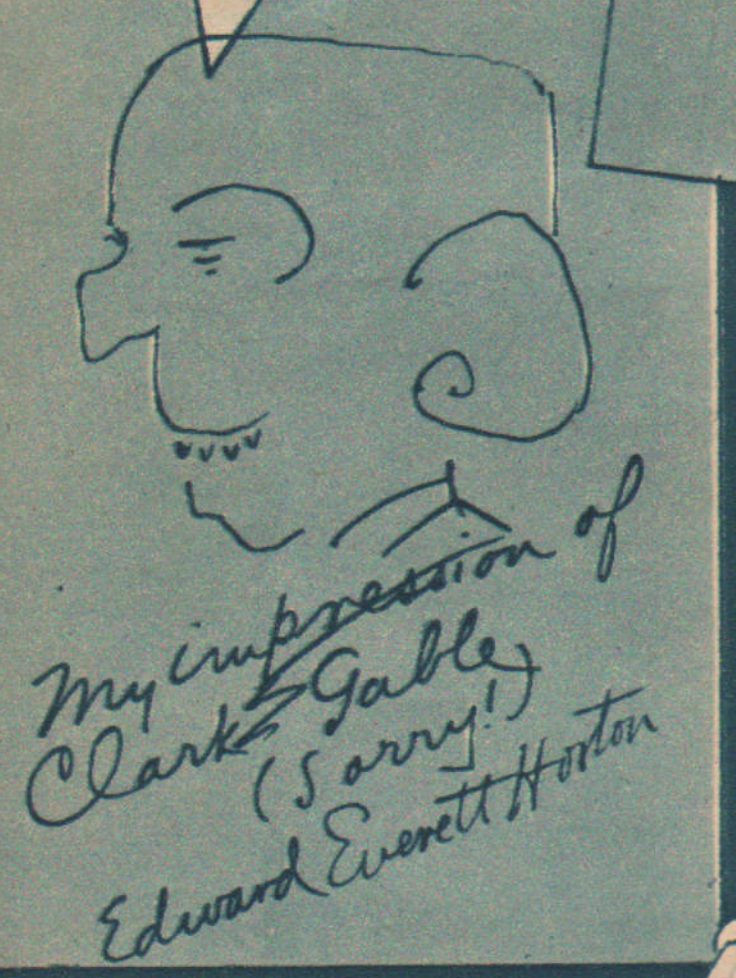 My impression of
Clark Gable
(Sorry!)
Edward Everett Horton